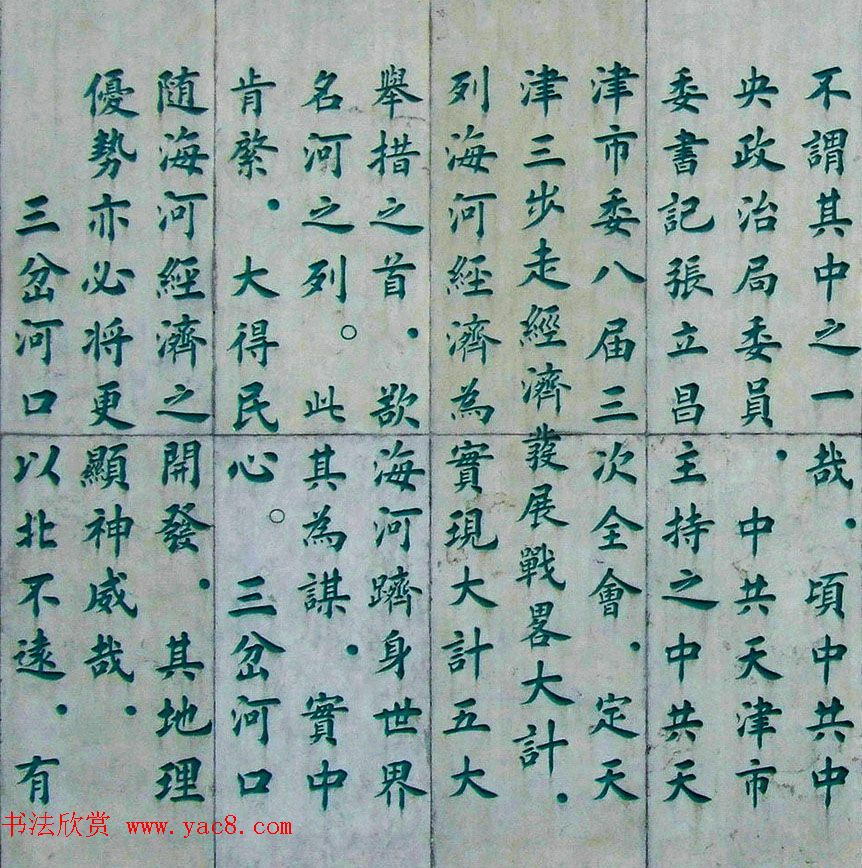 不謂其中之一哉．頃中共中
央政治局委員．中共天津市
委書記張立昌主持之中共天
津市委八届三次全會．定天
津三步走經濟發展戰畧大計．
列海河經濟為實現大計五大
舉措之首．欲海河躋身世界
名河之列。此其為謀．實中
肯綮．大得民心。三岔河口
随海河經濟之開發．其地理
優勢亦必将更顯神威哉．
三岔河口以北不遠．有
书法欣赏 www.yac8.com